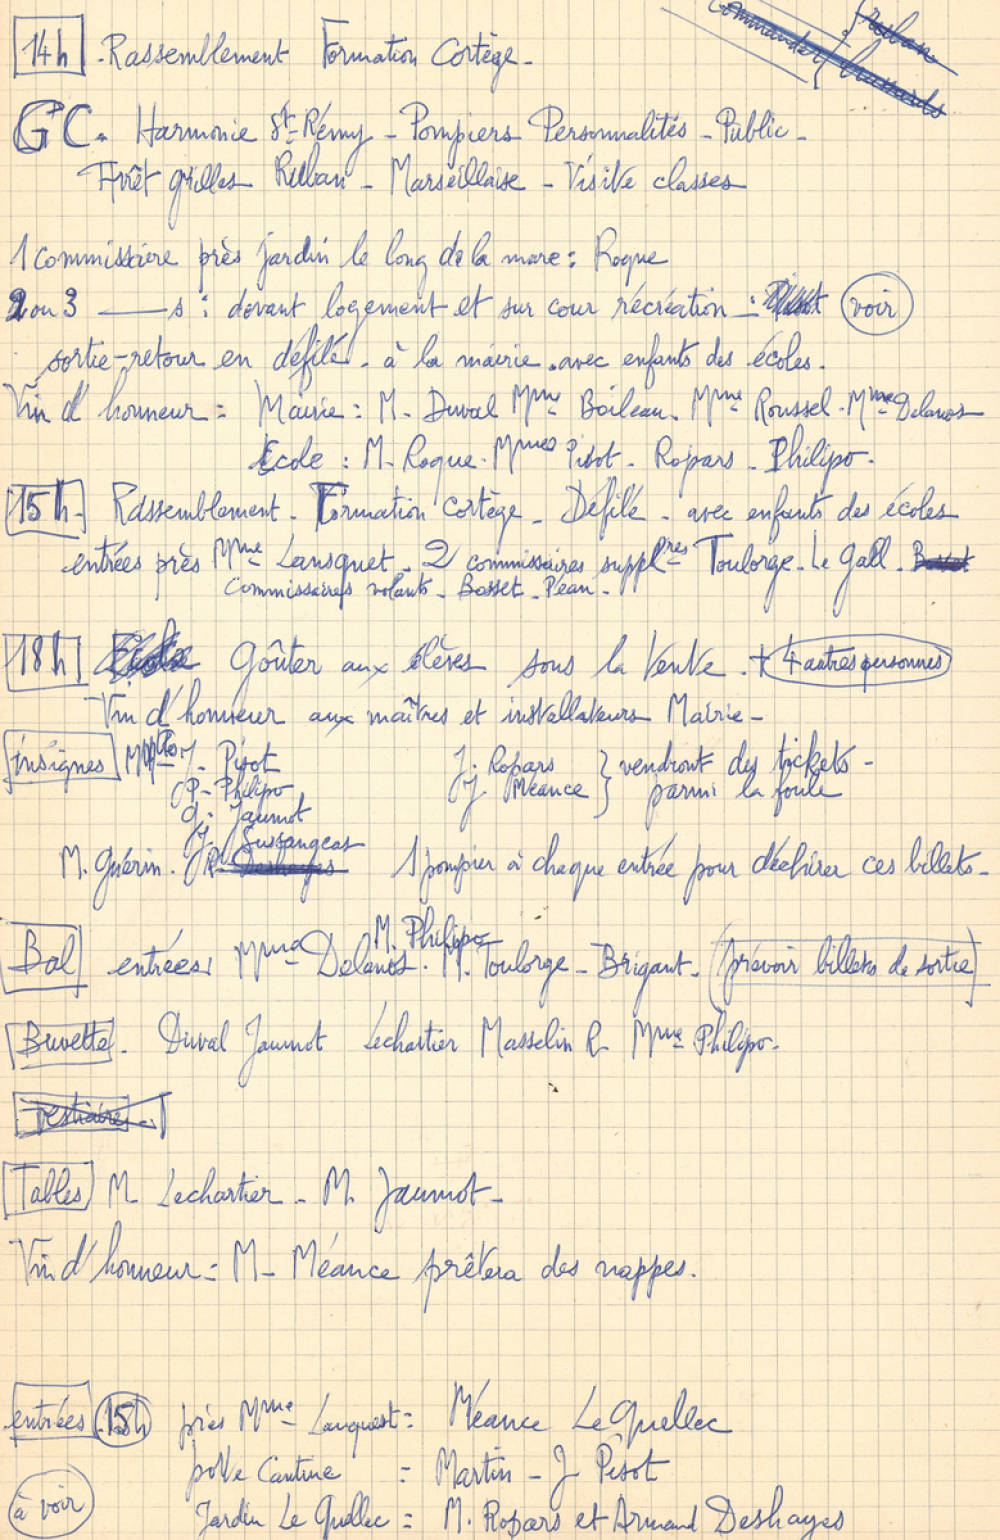 Commander
ruban
14h - Rassemblement Formation Cortège -
GC. Harmonie St-Rémy - Pompiers Personnalités - Public -
Arrêt grilles Ruban - Marseillaise - Visite classes
1 commissaire près jardin le long de la mare : Roque
2 ou 3 ——— s : devant logement et sur cour récréation : voir
sortie-retour en défilé - à la mairie - avec enfants des écoles.
Vin d'honneur = Mairie : M. Duval Mme Boileau. Mme Roussel. Mme Delanos
Ecole : M. Roque. Mmes Pisot - Ropars - Philipo.
15h - Rassemblement - Formation Cortège - Défilé - avec enfants des écoles
entrées près Mme Lansquet - 2 commissaires supplres Toulorge - Le Gall -
Commissaires volants - Bosset - Péan -
18h Goûter aux élèves sous la Tente - + 4 autres personnes
Vin d'honneur aux maîtres et installateurs Mairie -
insignes J. Pisot J. Ropars } vendront des tickets -
P. Philipo J. Méance } parmi la foule
G. Jaumot
J. Sussangeas
M. Guérin. R. Deshayes 1 pompier à chaque entrée pour déchirer ces billets -
M. Philipo
Bal entrées Mme Delanos. M. Toulorge - Brigant - (prévoir billets de sortie)
Buvette. Duval Jaumot Lechartier Masselin R Mme Philipo.
vestiaires
Tables M. Lechartier - M. Jaumot -
Vin d'honneur = M. Méance prêtera des nappes.
entrées 15h près Mme Lanquest = Méance Le Quellec
porte Cantine = Martin - J Pisot
à voir
Jardin Le Quellec = M. Ropars et Armand Deshayes